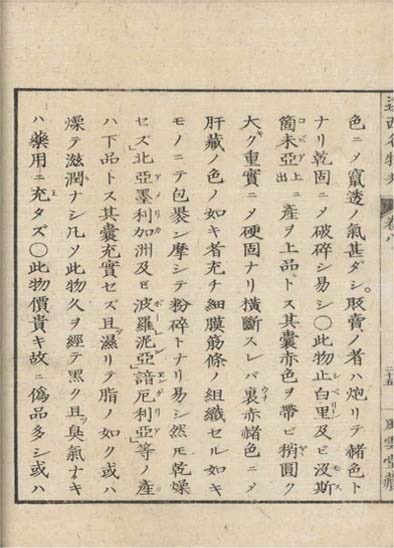 色ニメ竄透ノ氣甚ダシ。販賣ノ者ハ炮リテ褚色ト
ナリ乾固ニメ破碎シ易シ〇此物止白里及ビ沒斯
箇未亞ニ產ヲ上品トス其囊赤色ヲ帶ビ稍圓ク
大ク重實ニメ硬固ナリ橫斷スレバ裏赤褚色ニメ
肝藏ノ色ノ如キ者充チ細膜筋條ノ組織セル如キ
モノニテ包裹シ摩シテ粉碎トナリ易シ然モ乾燥
セズ「北亞墨利加洲及ビ「波羅泥亞」「諳厄利亞」等ノ產
ハ下品トス其囊充實セズ且ツ濕リテ脂ノ如ク或ハ
燥テ滋潤ナシ凡ソ此物久ヲ經テ黑ク且ツ臭氣ナキ
ハ藥用ニ充タズ〇此物價貴キ故ニ僞品多シ或ハ
卷八
風雲堂藏